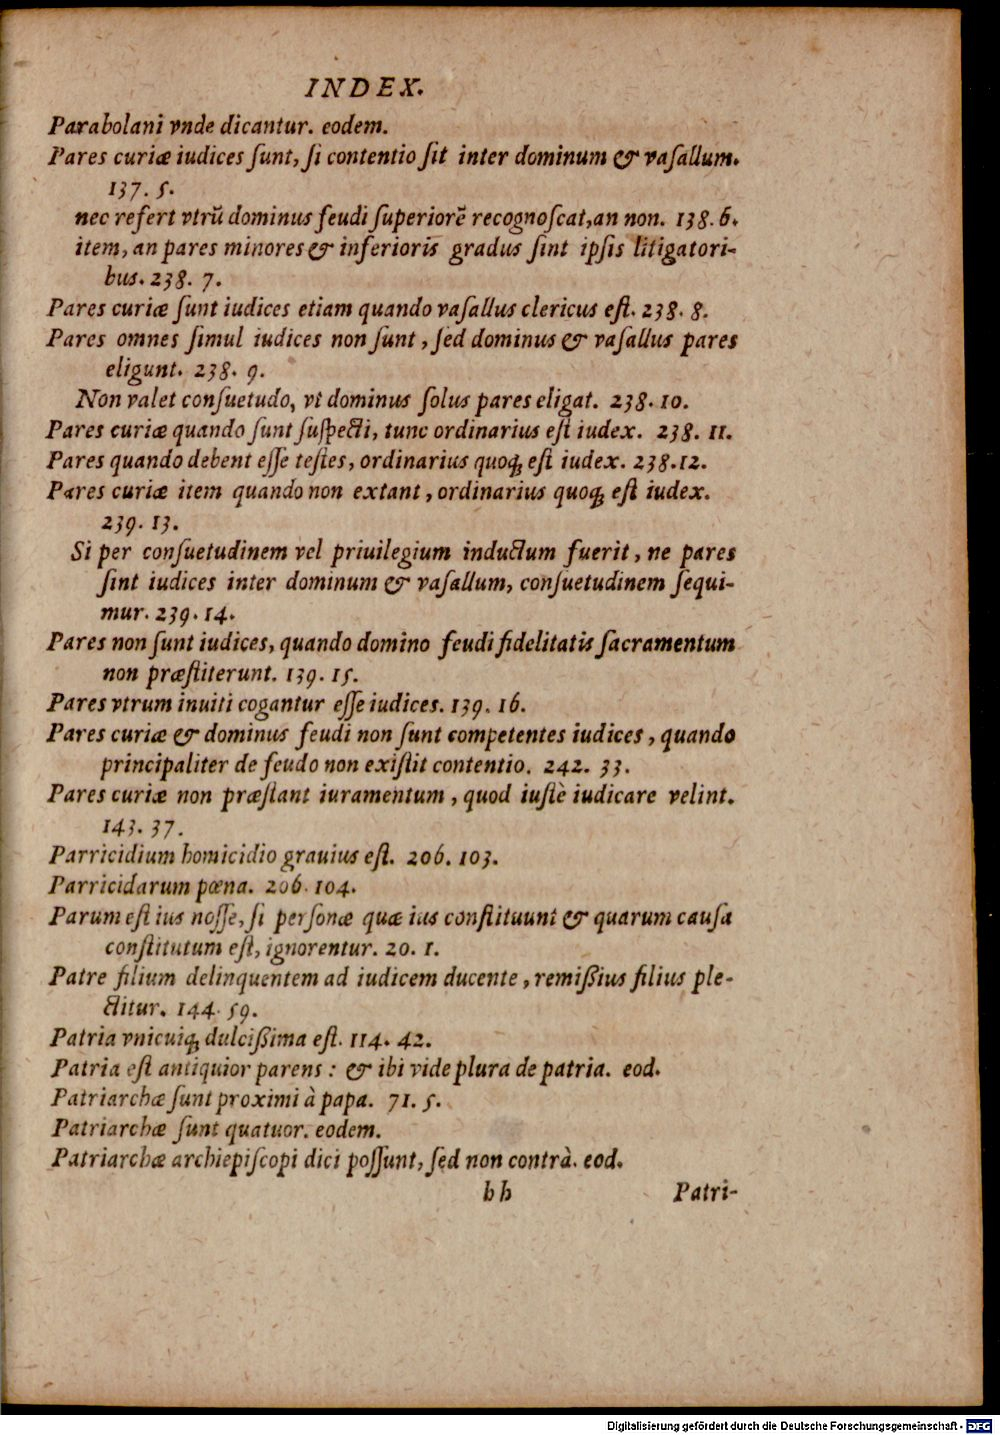 INDEX.
Parabolani vnde dicantur. eodem.
Pares curiæ iudices ſunt, ſi contentio ſit inter dominum & vaſallum.
137. 5.
nec refert vtrũ dominus feudi ſuperiorẽ recognoſcat, an non. 138. 6.
item, an pares minores & inferioris gradus ſint ipſis litigatori-
bus. 238. 7.
Pares curiæ ſunt iudices etiam quando vaſallus clericus eſt. 238. 8.
Pares omnes ſimul iudices non ſunt, ſed dominus & vaſallus pares
eligunt. 238. 9.
Non valet conſuetudo, vt dominus ſolus pares eligat. 238. 10.
Pares curiæ quando ſunt ſuſpecti, tunc ordinarius eſt iudex. 238. 11.
Pares quando debent eſſe teſtes, ordinarius quoq; eſt iudex. 238. 12.
Pares curiæ item quando non extant, ordinarius quoq; eſt iudex.
239. 13.
Si per conſuetudinem vel priuilegium inductum fuerit, ne pares
ſint iudices inter dominum & vaſallum, conſuetudinem ſequi-
mur. 239. 14.
Pares non ſunt iudices, quando domino feudi fidelitatis ſacramentum
non præſtiterunt. 139. 15.
Pares vtrum inuiti cogantur eſſe iudices. 139. 16.
Pares curiæ & dominus feudi non ſunt competentes iudices, quando
principaliter de feudo non exiſtit contentio. 242. 33.
Pares curiæ non præſtant iuramentum, quod iuſtè iudicare velint.
143. 37.
Parricidium homicidio grauius eſt. 206. 103.
Parricidarum pœna. 206. 104.
Parum eſt ius noſſe, ſi perſonæ quæ ius conſtituunt & quarum cauſa
conſtitutum eſt, ignorentur. 20. 1.
Patre filium delinquentem ad iudicem ducente, remißius filius ple-
ctitur. 144. 59.
Patria vnicuiq; dulcißima eſt. 114. 42.
Patria eſt antiquior parens: & ibi vide plura de patria. eod.
Patriarchæ ſunt proximi à papa. 71. 5.
Patriarchæ ſunt quatuor. eodem.
Patriarchæ archiepiſcopi dici poſſunt, ſed non contrà. eod.
hh Patri-
Digitalisierung gefördert durch die Deutsche Forschungsgemeinschaft - DFG